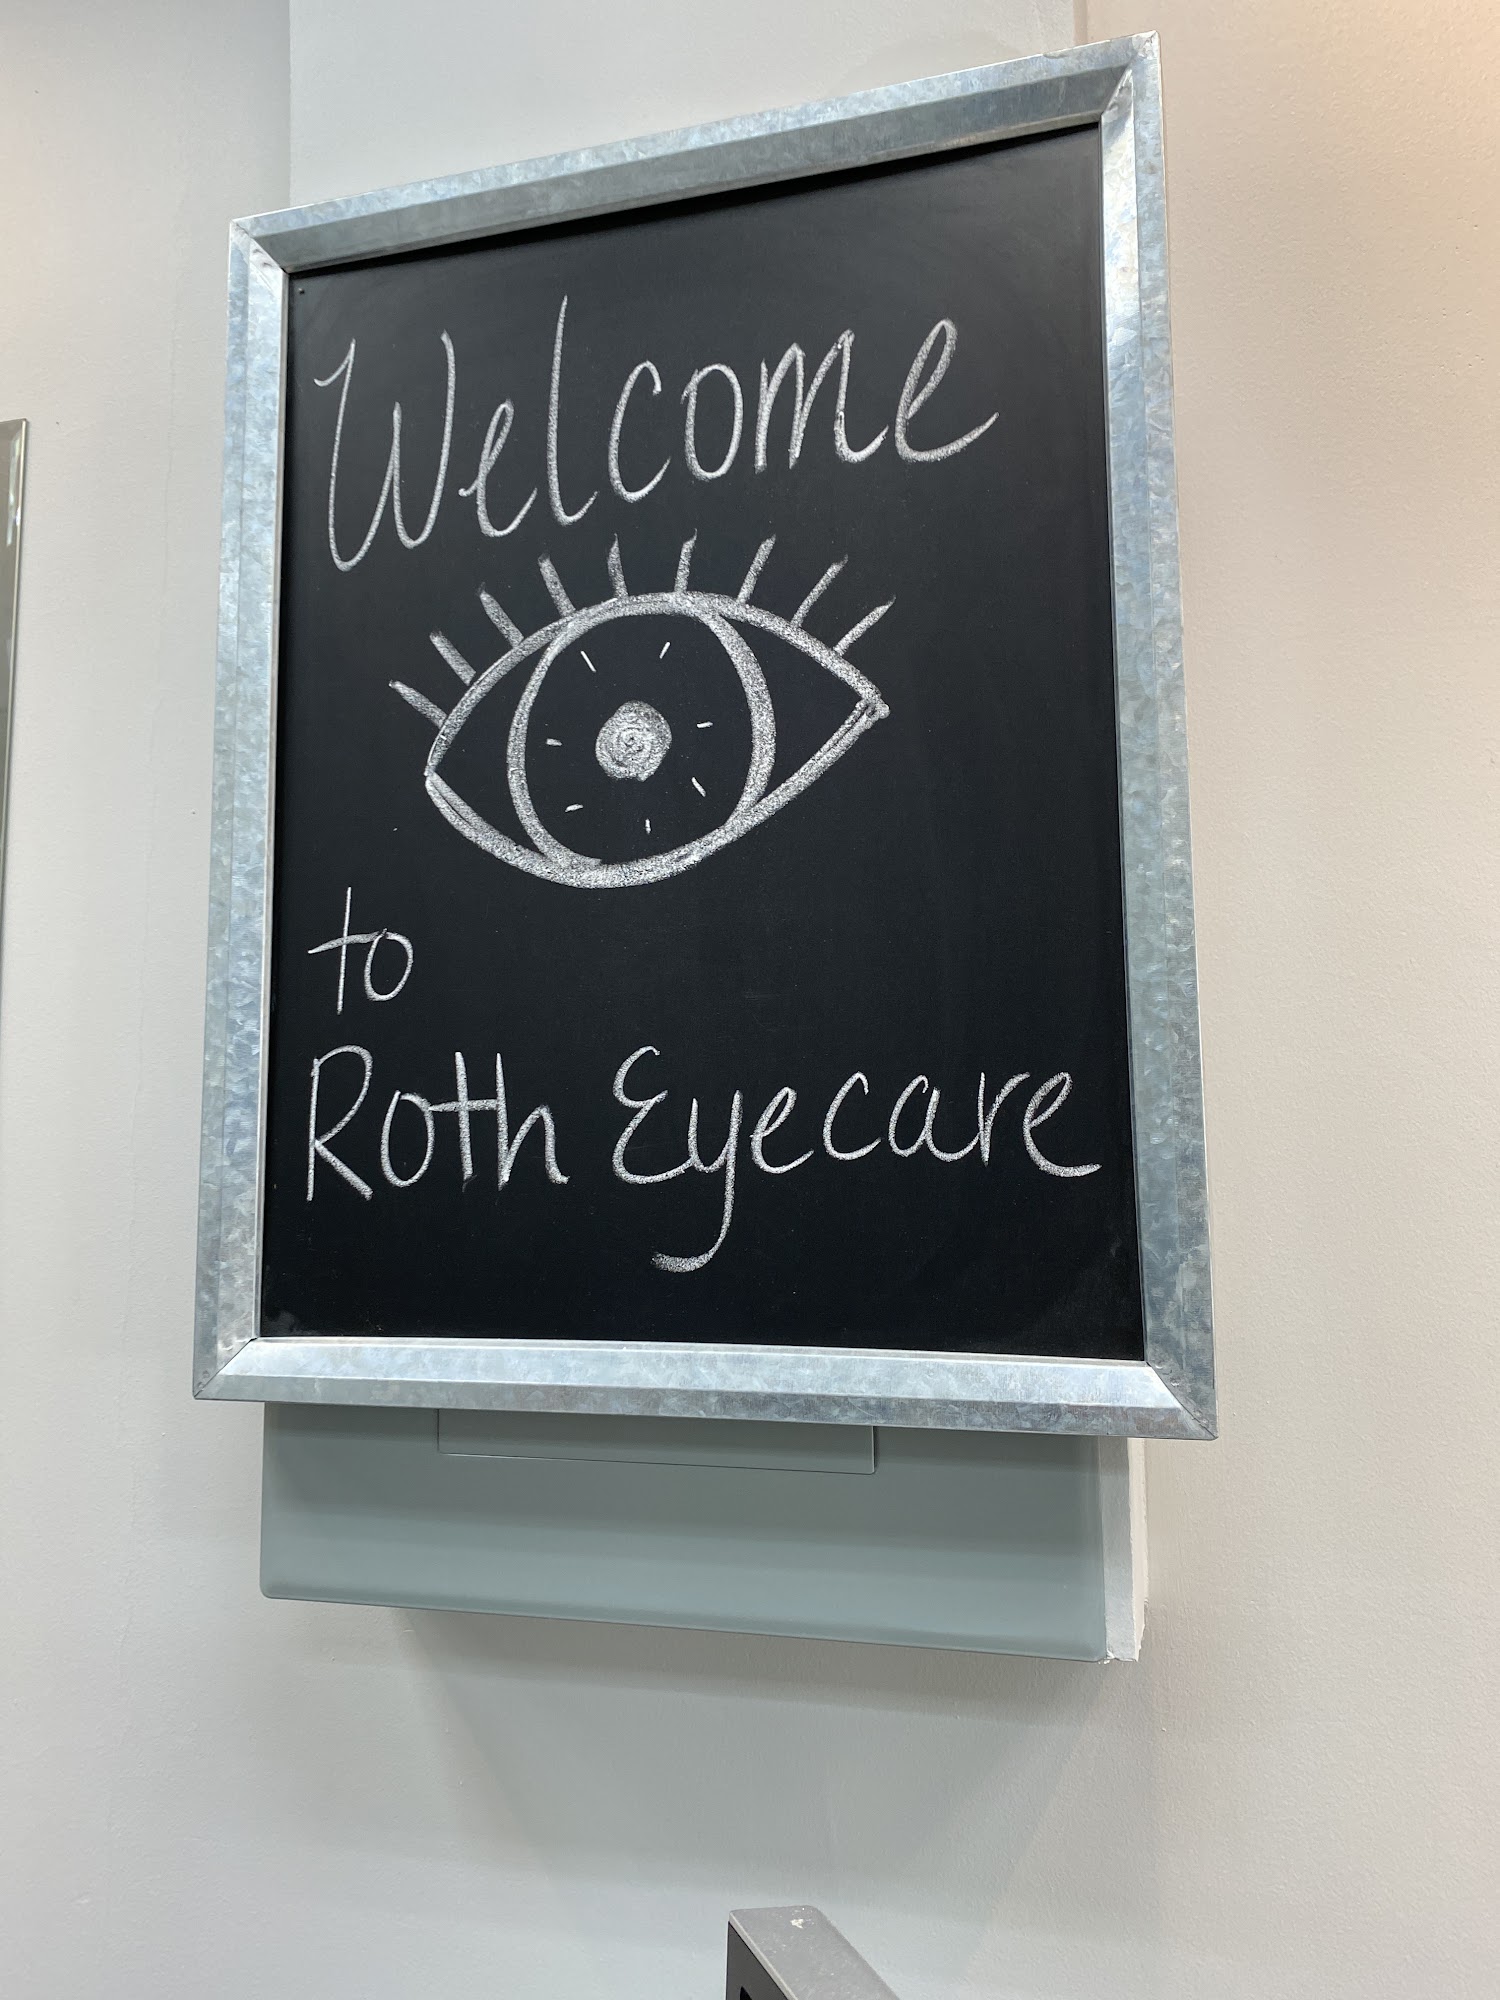 Welcome
to
Roth Eyecare